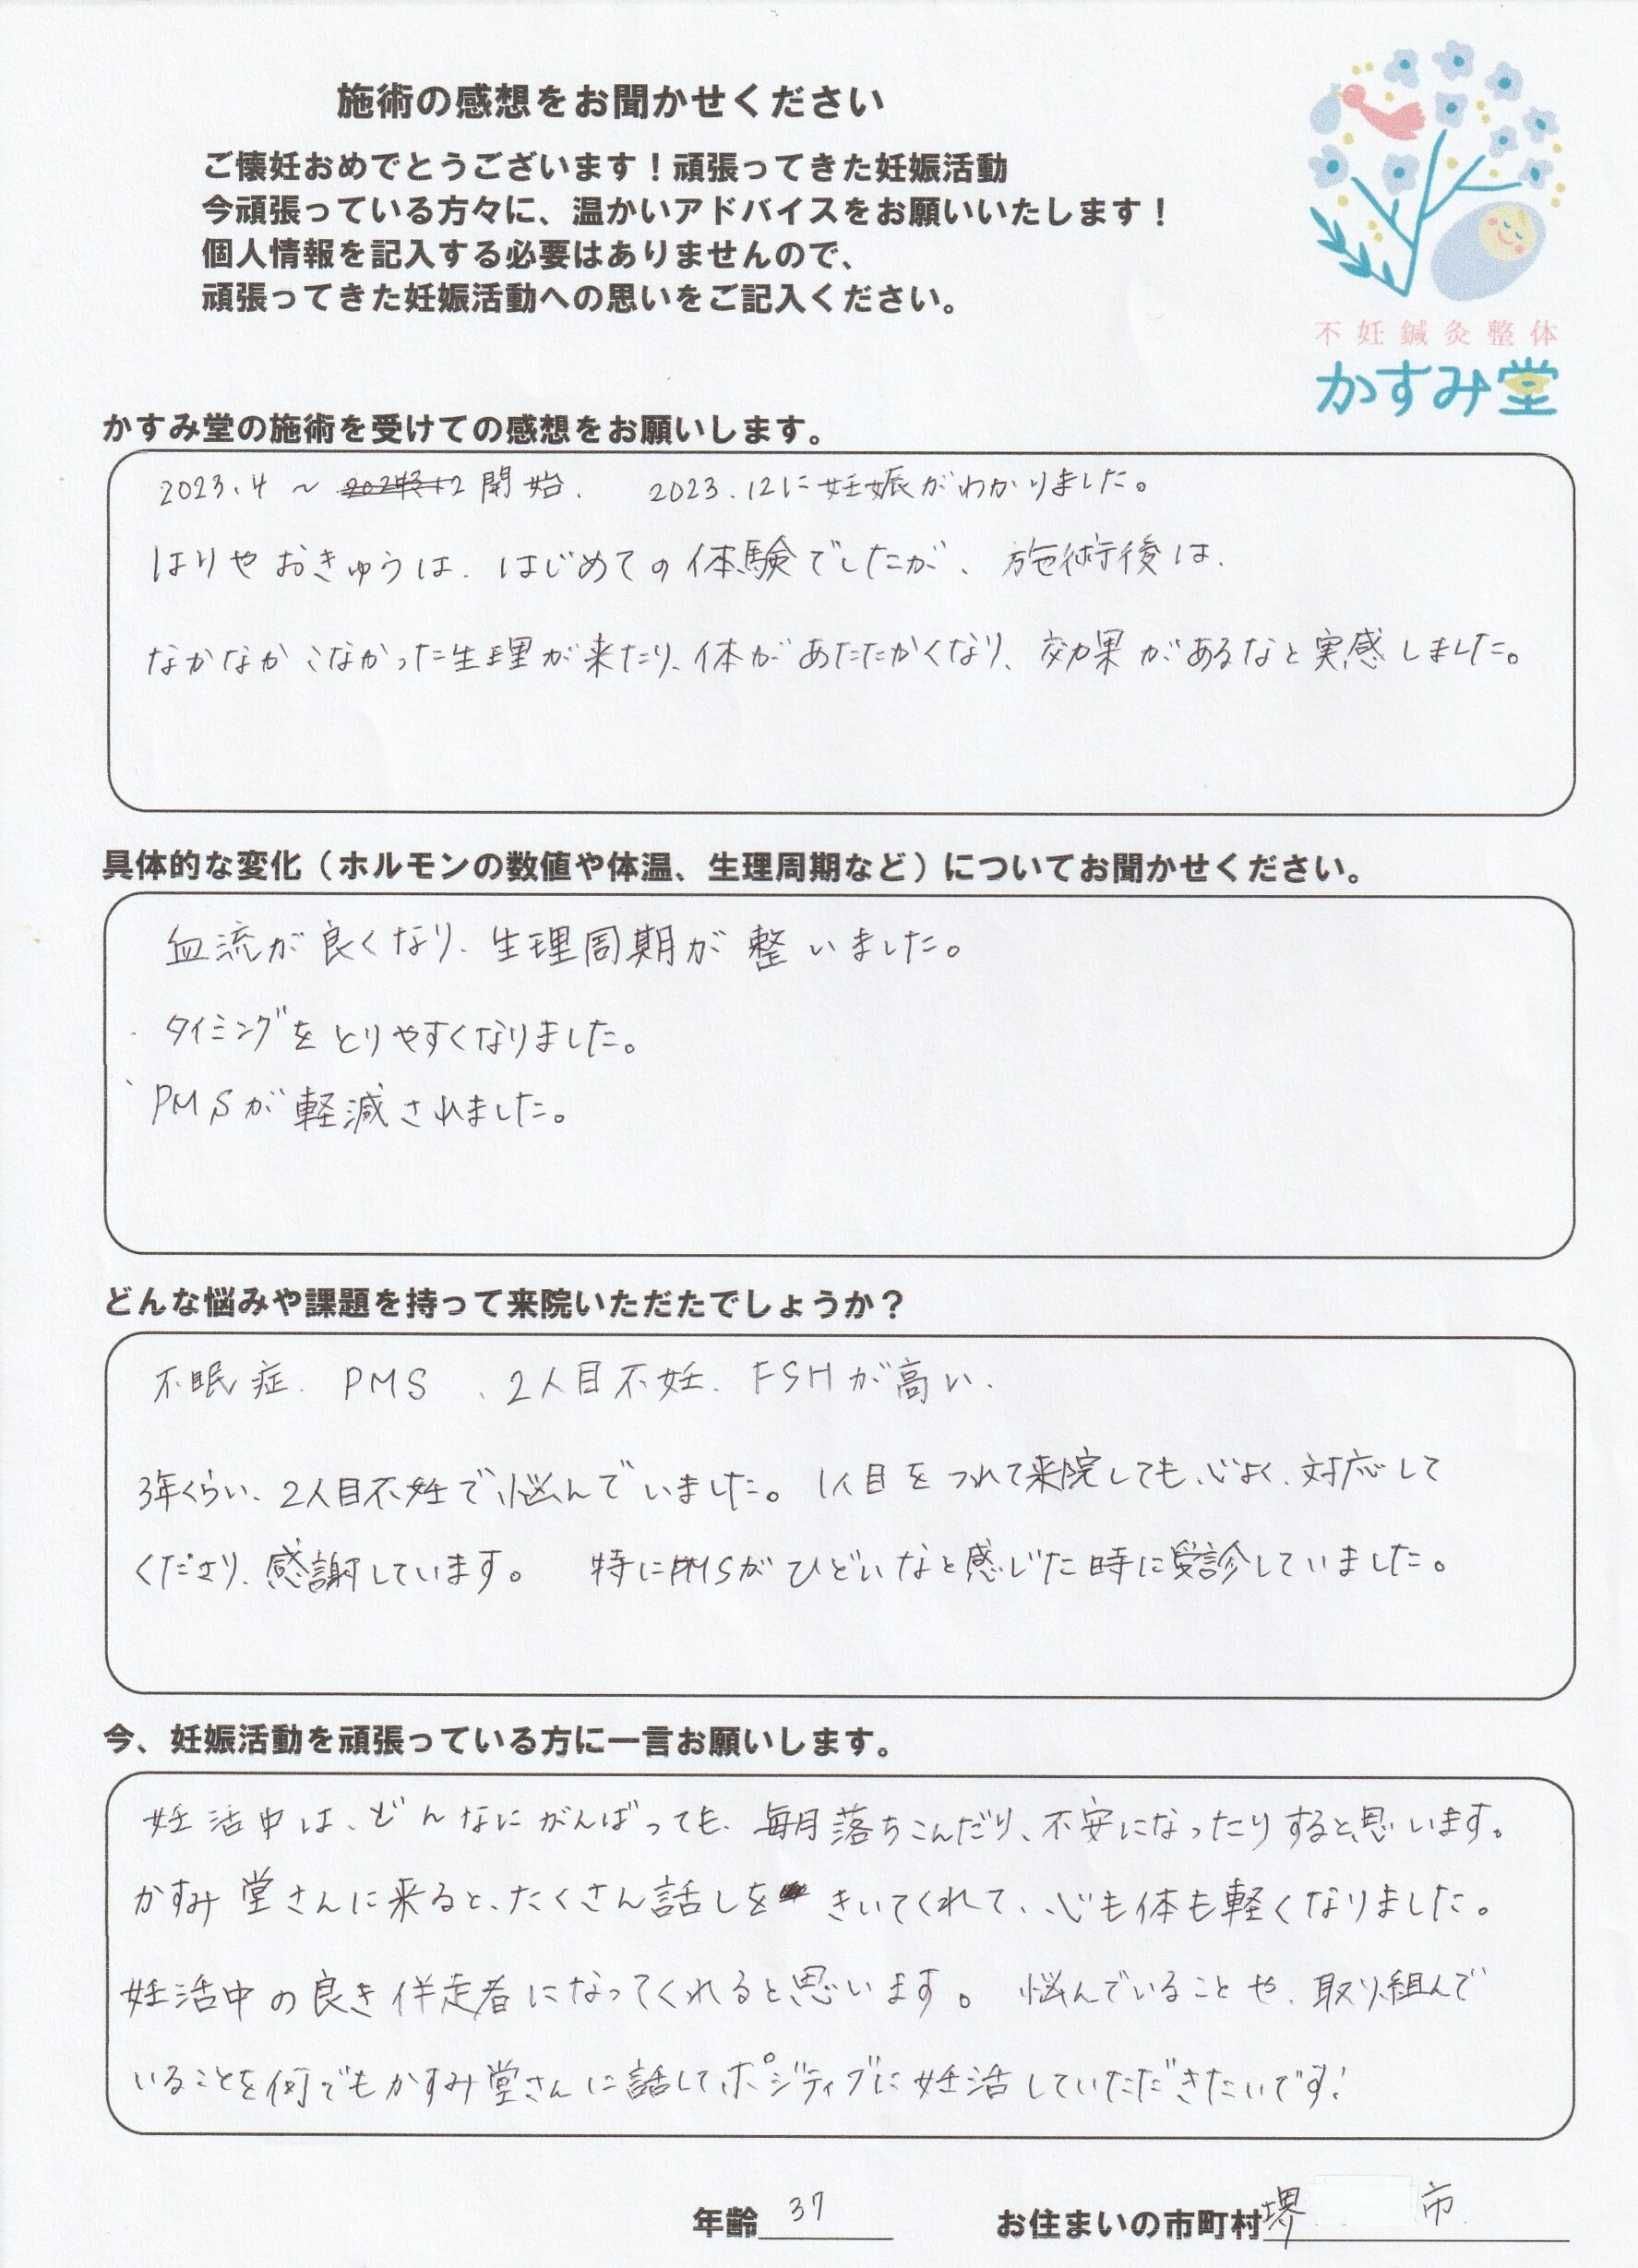 施術の感想をお聞かせください
ご懐妊おめでとうございます！頑張ってきた妊娠活動
今頑張っている方々に、温かいアドバイスをお願いいたします！
個人情報を記入する必要はありませんので、
頑張ってきた妊娠活動への思いをご記入ください。
不妊鍼灸整体
かすみ堂
かすみ堂の施術を受けての感想をお願いします。
2023.4 ～ 開始. 2023.12に妊娠がわかりました。
はりやおきゅうは、はじめての体験でしたが、施術後は、
なかなかこなかった生理が来たり、体があたたかくなり、効果があるなと実感しました。
具体的な変化（ホルモンの数値や体温、生理周期など）についてお聞かせください。
血流が良くなり、生理周期が整いました。
タイミングをとりやすくなりました。
PMSが軽減されました。
どんな悩みや課題を持って来院いただたでしょうか？
不眠症、PMS、2人目不妊、FSHが高い、
3年くらい、2人目不妊で悩んでいました。1人目をつれて来院しても、心よく、対応して
くださり、感謝しています。 特にPMSがひどいなと感じた時に受診していました。
今、妊娠活動を頑張っている方に一言お願いします。
妊活中は、どんなにがんばっても、毎月落ちこんだり、不安になったりすると思います。
かすみ堂さんに来ると、たくさん話しをきいてくれて、心も体も軽くなりました。
妊活中の良き伴走者になってくれると思います。 悩んでいることや、取り組んで
いることを何でもかすみ堂さんに話して、ポジティブに妊活していただきたいです！
年齢 37 お住まいの市町村 堺 市